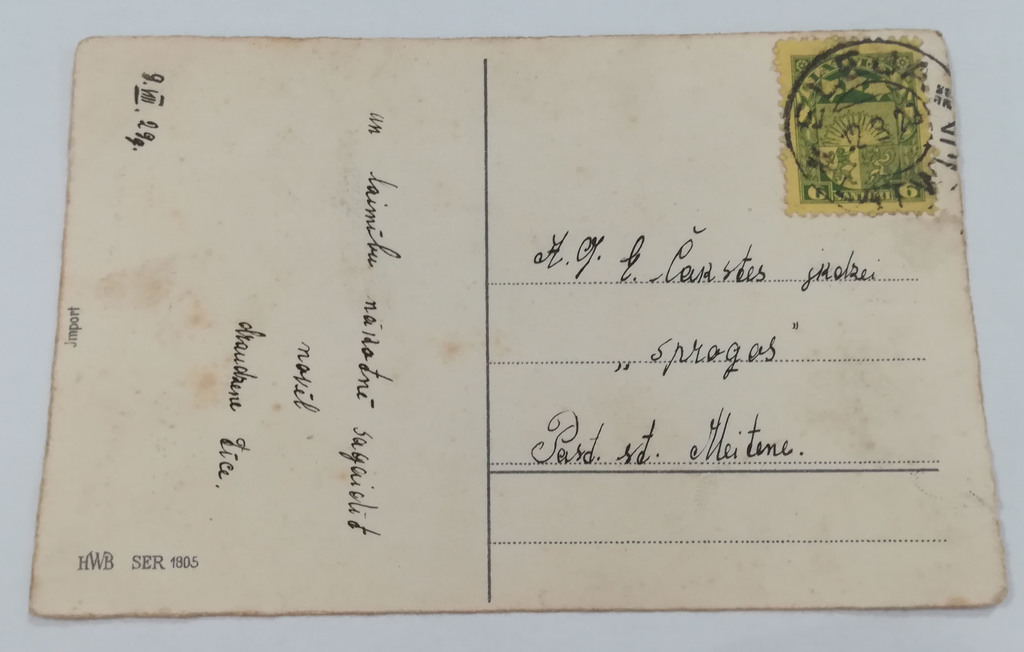 9. VIII. 29g.
un laimību nākotnē sagaidīt
novēl
draudzene Tīce.
Import
HWB SER 1805
LATVIJA
6 SANTIMI 6
ELEJA
A. G. E. Čakstes jkdzei
„Sprogos"
Past. st. Meitene.